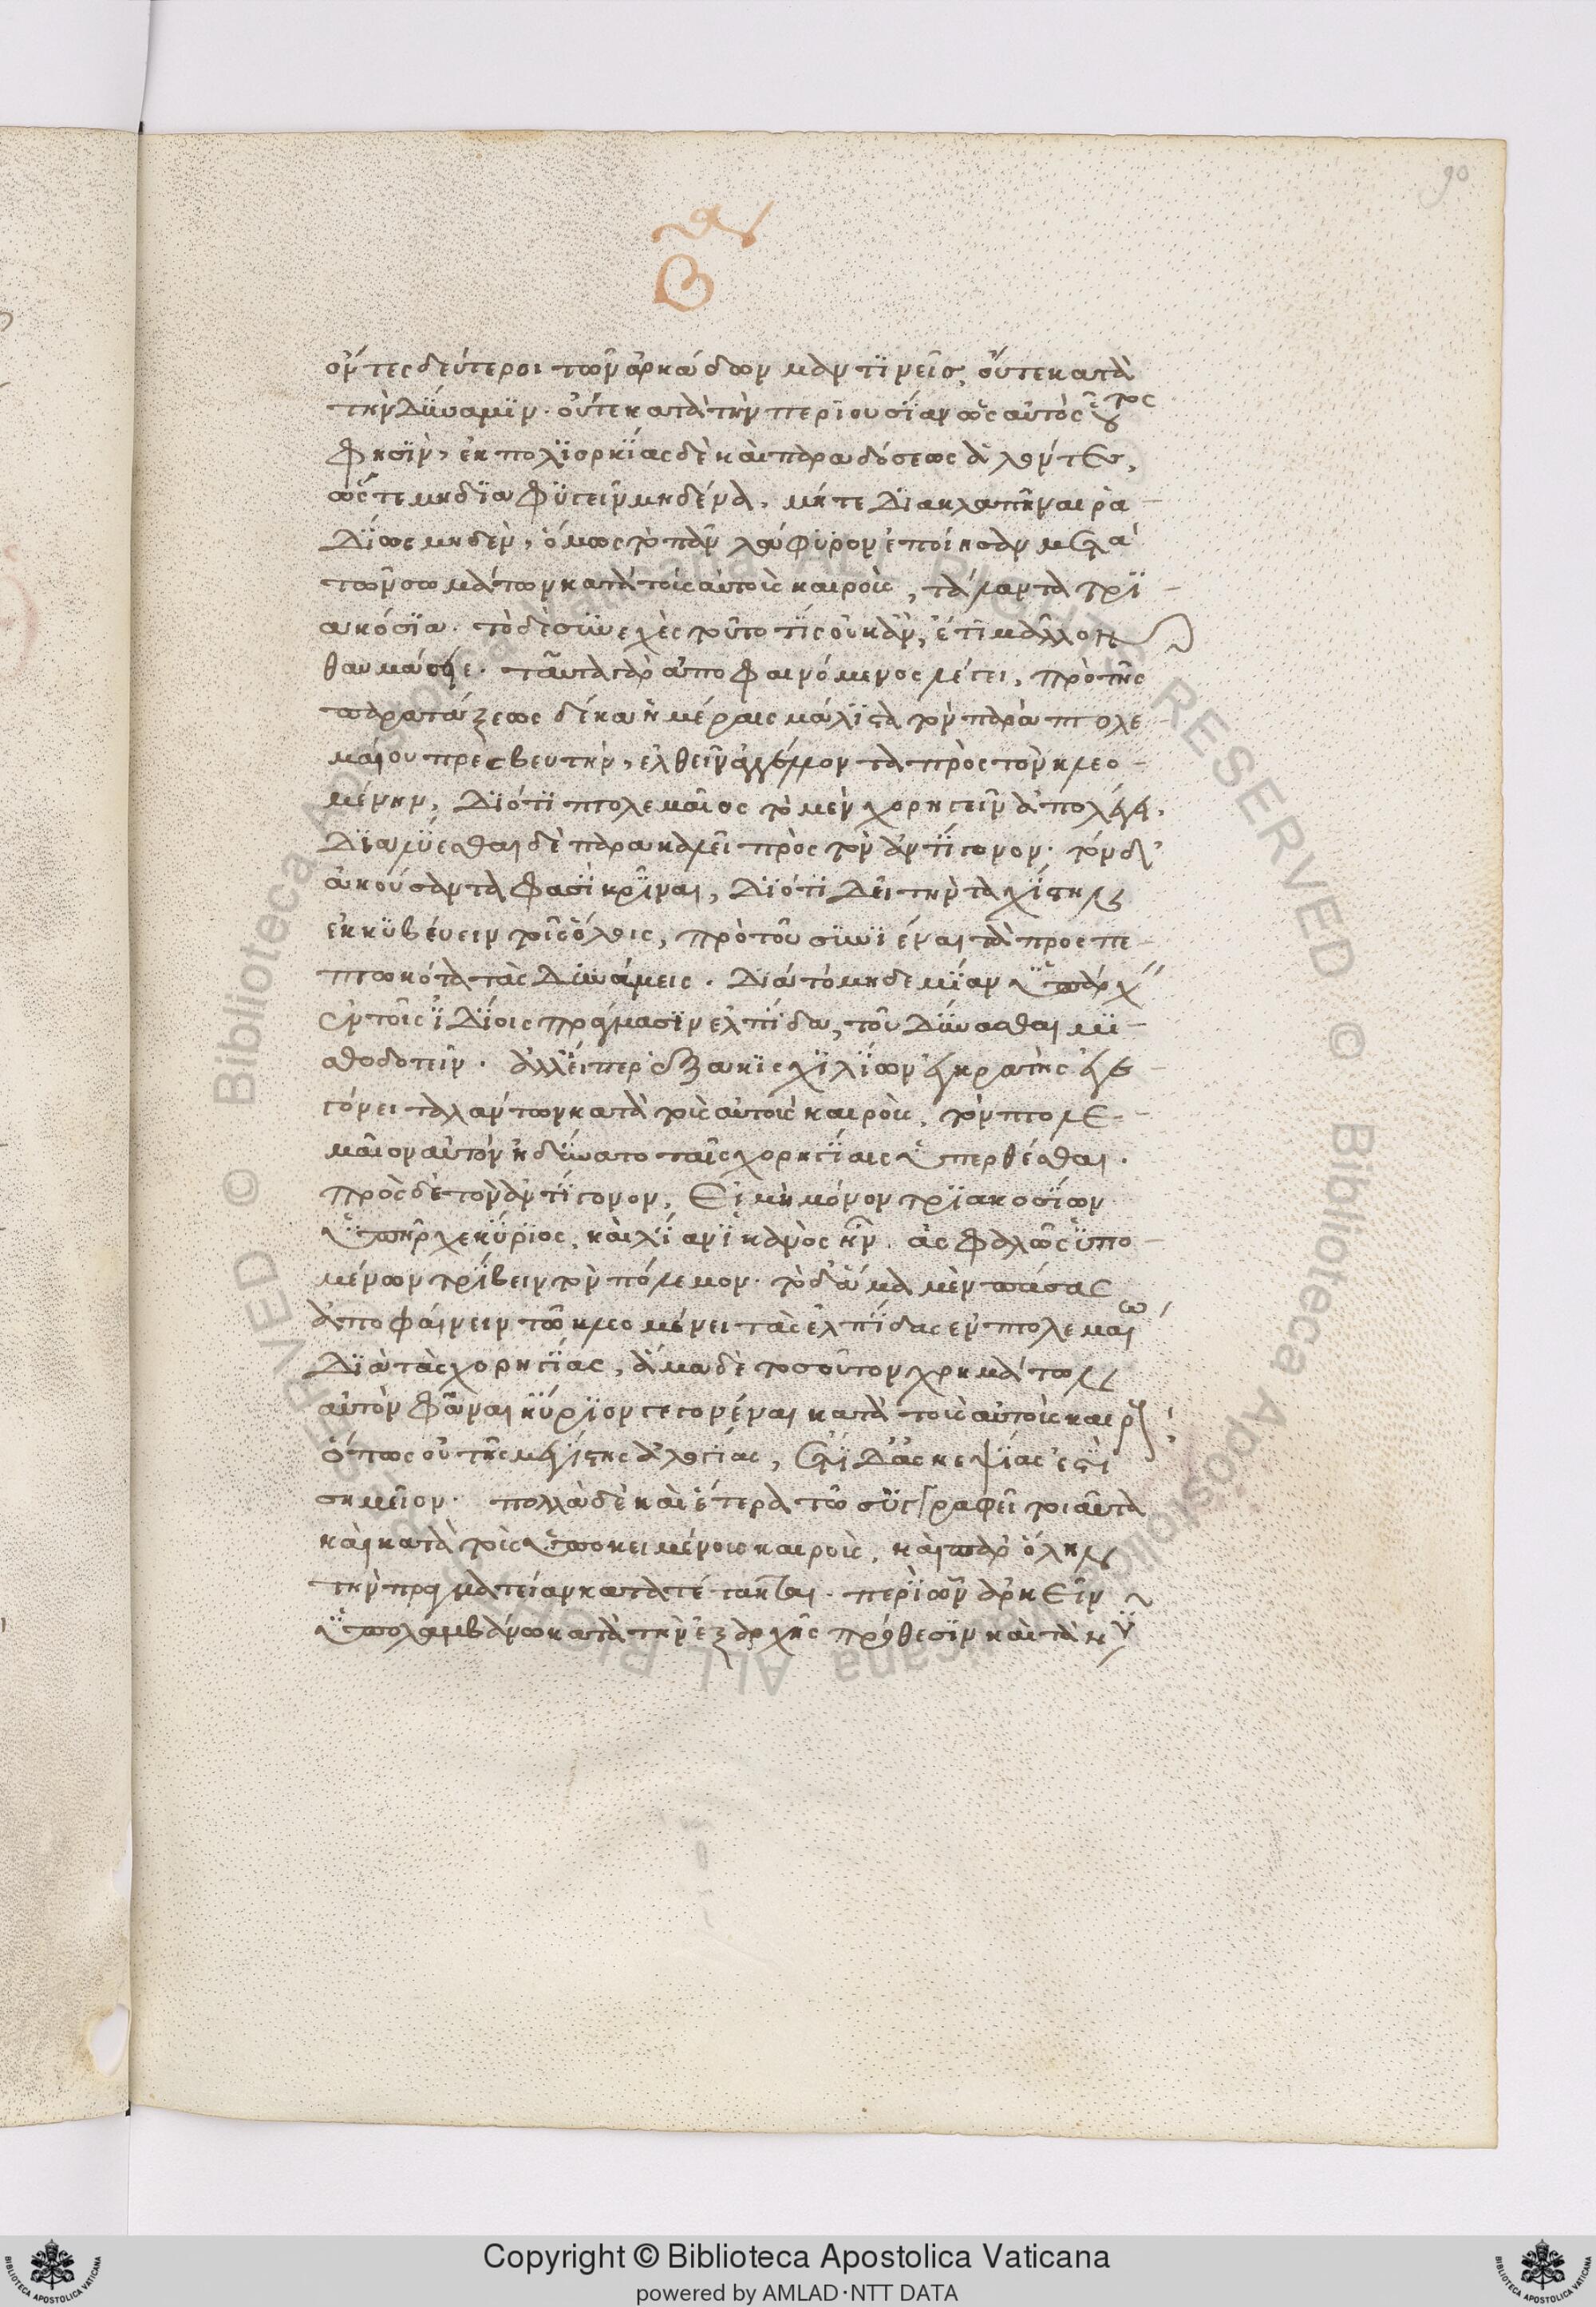 90
β
ὄντες δεύτεροι τῶν ἀρκάδων μαντϊνεῖς, οὔτε κατὰ
τὴν δύναμϊν. οὔτε κατὰ τὴν περϊουσΐαν ὡς αὐτὸς οὗτος
φησϊν, ἐκ πολϊορκΐας δὲ καὶ παραδόσεως ἁλόντες,
ὥστε μηδϊαφϋγεῖν μηδένα, μήτε δϊακλαπῆναι ρα-
δΐως μηδὲν, ὅμως τὸ πᾶν λάφϋρον ἐποίησαν μετὰ
τῶν σωμάτων κατὰ τοὺς αὐτοὺς καιροὺς, τάλαντα τρϊ-
ακόσϊα. τὸ δὲ συνεχὲς τοῦτο τΐς οὐκ ἂν, ἔτϊ μᾶλλον
θαυμάσειε. ταῦτα γὰρ ἀποφαινόμενος λέγει, πρὸ τῆς
παρατάξεως δέκα ἡμέραις μάλϊστα τὸν παρὰ πτολε-
μαίου πρεσβευτὴν, ἐλθεῖν ἀγγέλλοντα πρὸς τὸν κλεο-
μένην, δϊότϊ πτολεμαῖος τὸ μὲν χορηγεῖν ἀπολέγει,
δϊαλύεσθαι δὲ παρακαλεῖ πρὸς τὸν ἀντΐγονον. τὸν δ'
ἀκούσαντα φασὶ κρῖναι, δϊότϊ δεῖ τὴν ταχΐστην
ἐκκϋβεύειν τοῖς ὅλοις, πρὸ τοῦ συνϊέναι τὰ προσπε-
πτωκότα τὰς δυνάμεις. δϊὰ τὸ μηδεμΐαν ὑπάρχειν
ἐν τοῖς ϊδΐοις πράγμασϊν ἐλπΐδα, τοῦ δύνασθαι μϊ-
σθοδοτεῖν. ἀλλ' εἴπερ ἑξακϊσχϊλΐων ἐγκρατὴς ἐγε-
γόνει ταλάντων κατὰ τοὺς αὐτοὺς καιροὺς, τὸν πτολε-
μαῖον αὐτὸν ἠδύνατο ταῖς χορηγΐαις ὑπερθέσθαι.
πρὸς δὲ τὸν ἀντΐγονον, εἰ μὴ μόνον τρϊακοσΐων
ὑπῆρχε κύρϊος, καὶ λΐαν ϊκανὸς ἦν. ἀσφαλῶς ὑπο-
μένων τρΐβειν τὸν πόλεμον. τὸ δ' ἅμα μὲν πάσας
ἀποφαίνειν τῶ κλεομένει τὰς ἐλπΐδας ἐν πτολεμαίω
δϊὰ τὰς χορηγΐας, ἅμα δὲ τοσοῦτον χρημάτων
αὐτὸν φάναι κύρϊον γεγονέναι κατὰ τοὺς αὐτοὺς καιροὺς
ὅπως οὐ τῆς μεγΐστης ἀλογΐας, ἔτϊ δ' ἀσκεψΐας ἐστὶ
σημεῖον. πολλὰ δὲ καὶ ἕτερα τῶ συγγραφεῖ τοιαῦτα
καὶ κατὰ τοὺς ὑποκειμένους καιροὺς, καὶ παρ' ὅλην
τὴν πραγματείαν κατατέτακται. περὶ ὧν ἀρκεῖν
ὑπολαμβάνω κατὰ τὴν ἐξ ἀρχῆς πρόθεσϊν καὶ τὰ νῦν